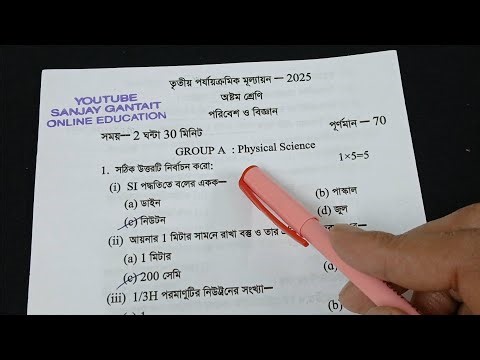 তৃতীয় পর্যায়ক্রমিক মূল্যায়ন — 2025
YOUTUBE
SANJAY GANTAIT
ONLINE EDUCATION
অষ্টম শ্রেণি
পরিবেশ ও বিজ্ঞান
সময়— 2 ঘন্টা 30 মিনিট পূর্ণমান — 70
GROUP A : Physical Science
1. সঠিক উত্তরটি নির্বাচন করো: 1×5=5
(i) SI পদ্ধতিতে বলের একক—
(a) ডাইন (b) পাস্কাল
(c) নিউটন (d) জুল
(ii) আয়নার 1 মিটার সামনে রাখা বস্তু ও তার
(a) 1 মিটার
(c) 200 সেমি (d)
(iii) 1/3H পরমাণুটির নিউট্রনের সংখ্যা—
(b)